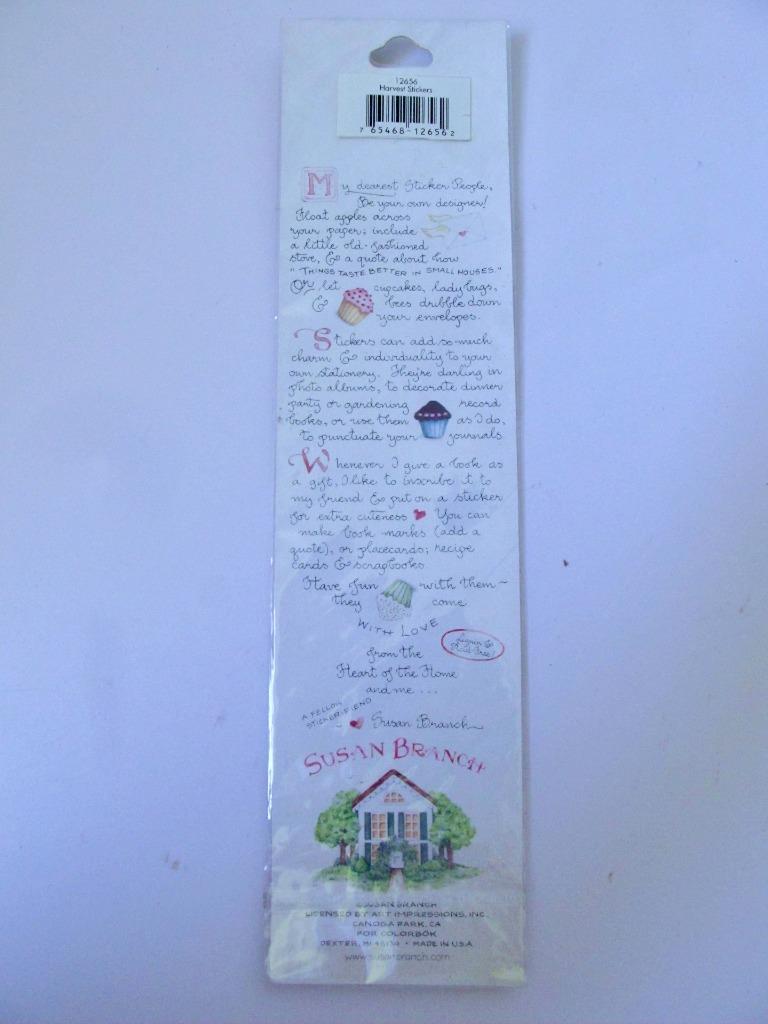 12656
Harvest Stickers
7 65468-12656 2
My dearest Sticker People,
Be your own designer!
Float apples across
your paper; include
a little old-fashioned
stove, & a quote about how
"THINGS TASTE BETTER IN SMALL HOUSES."
Or let cupcakes, ladybugs,
& bees dribble down
your envelopes.
Stickers can add so much
charm & individuality to your
own stationery. They're darling in
photo albums, to decorate dinner
party or gardening record
books, or use them as I do,
to punctuate your journals.
Whenever I give a book as
a gift, I like to inscribe it to
my friend & put on a sticker
for extra cuteness You can
make book marks (add a
quote), or placecards; recipe
cards & scrapbooks.
Have fun with them~
they come
WITH LOVE
Lignin &
Acid-Free!
from the
Heart of the Home
and me ...
A FELLOW
STICKER-FIEND
Susan Branch
SUSAN BRANCH
©SUSAN BRANCH
LICENSED BY ART IMPRESSIONS, INC.
CANOGA PARK, CA
FOR COLORBÖK
DEXTER, MI 48130 • MADE IN U.S.A.
www.susanbranch.com